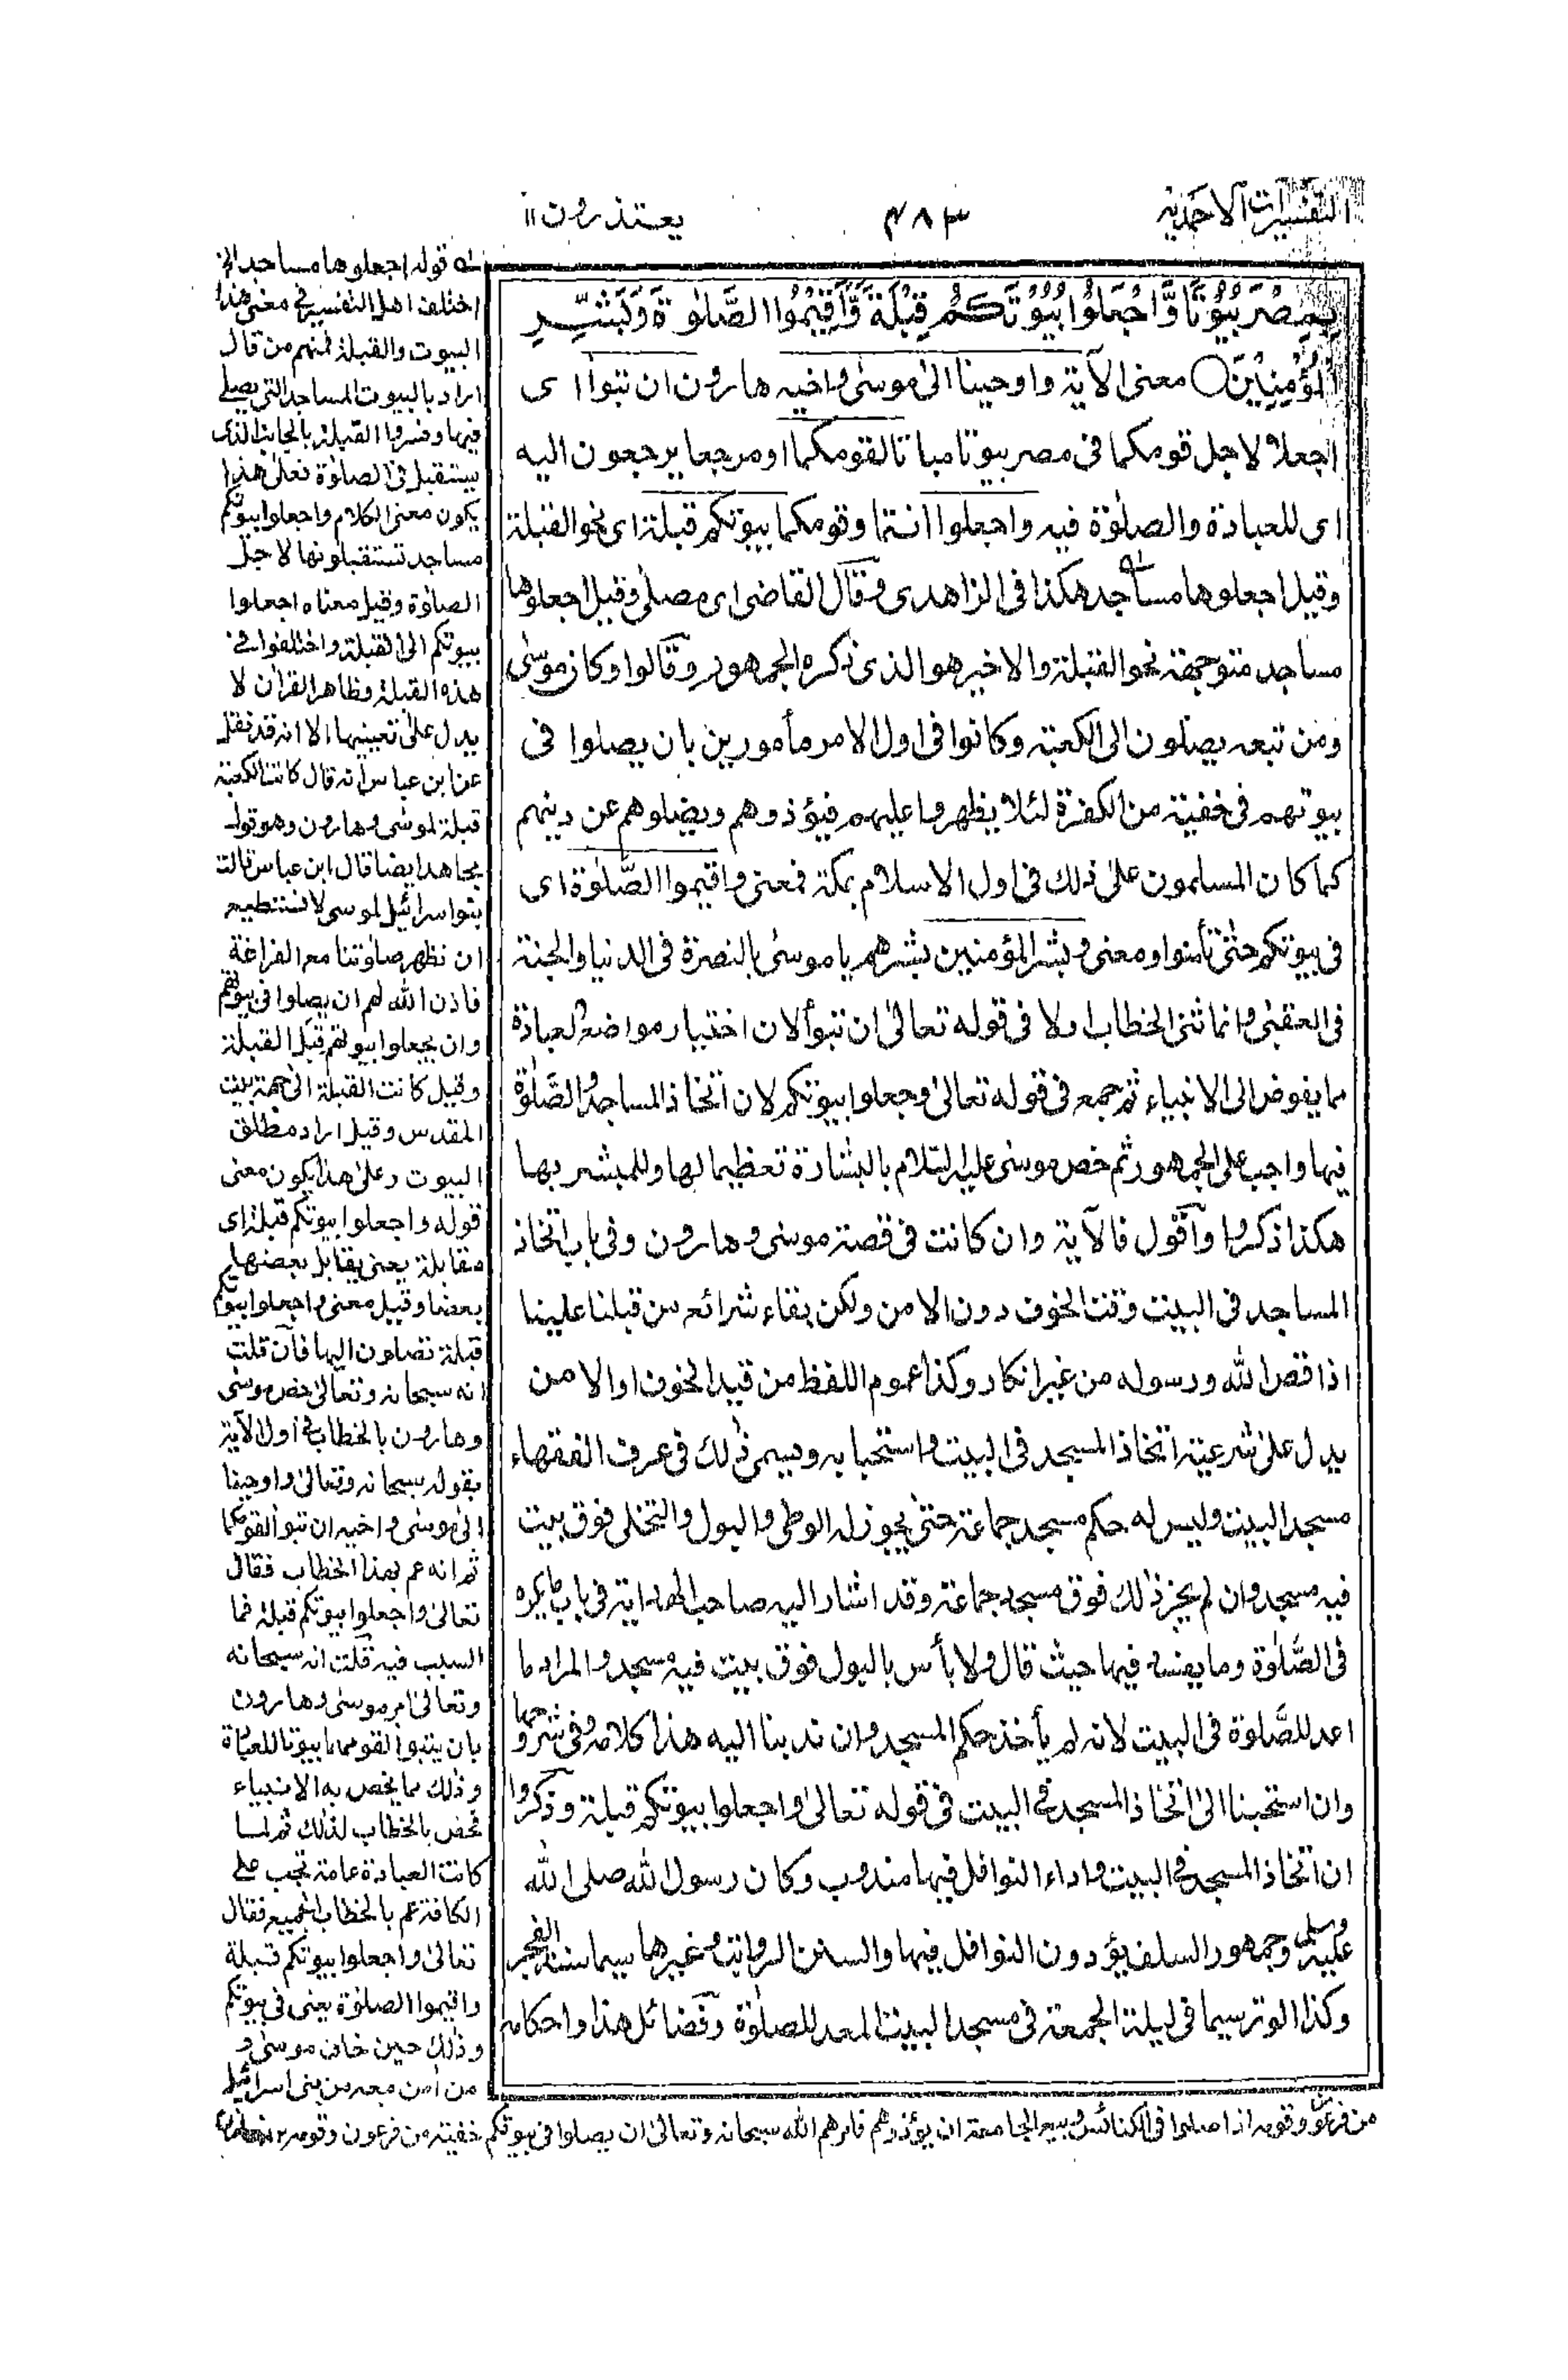 التفسيرات الاحمدية
۴۸۳
يعتذرون ۱۱
بِمِصْرَ بُيُوْتًا وَّاجْعَلُوْا بُيُوْتَكُمْ قِبْلَةً وَّاَقِيْمُوا الصَّلٰوةَ وَبَشِّرِ
الْمُؤْمِنِيْنَ ○ معنى الآية واوحينا الىٰ موسىٰ واخيه هارون ان تبوأ اى
اجعلا لاجل قومكما فى مصر بيوتا مباتا لقومكما او مرجعا يرجعون اليه
اى للعبادة والصلوٰة فيه واجعلوا انتما وقومكما بيوتكم قبلة اى نحو القبلة
وقيل اجعلوها مساجد هكذا فى الزاهدى وقال القاضى اى مصلى وقيل اجعلوها
مساجد متوجهة نحو القبلة والاخير هو الذى ذكره الجمهور وقالوا وكان موسىٰ
ومن تبعه يصلون الى الكعبة وكانوا فى اول الامر مأمورين بان يصلوا فى
بيوتهم فى خفية من الكفرة لئلا يظهروا عليهم فيؤذوهم ويضلوهم عن دينهم
كما كان المسلمون علىٰ ذلك فى اول الاسلام بمكة فمعنى واقيموا الصَّلوٰة اى
فى بيوتكم حتىٰ تأمنوا ومعنى وبشر المؤمنين بشرهم يا موسىٰ بالنصرة فى الدنيا والجنة
فى العقبىٰ وانما ثنى الخطاب اولا فى قوله تعالىٰ ان تبوأ لان اختيار مواضع العبادة
مما يفوض الى الانبياء ثم جمع فى قوله تعالىٰ وجعلوا بيوتكم لان اتخاذ المساجد والصَّلوٰة
فيها واجب على الجمهور ثم خص موسىٰ عليه السلام بالبشارة تعظيما لها وللمبشر بها
هكذا ذكروا وآقول فالآية وان كانت فى قصة موسىٰ وهارون وفى باب اتخاذ
المساجد فى البيت وقت الخوف دون الامن ولكن بقاء شرائع من قبلنا علينا
اذا قص الله ورسوله من غير انكار وكذا عموم اللفظ من قيد الخوف او الامن
يدل علىٰ شرعية اتخاذ المسجد فى البيت واستحبابه ويسمى ذٰلك فى عرف الفقهاء
مسجد البيت وليس له حكم مسجد جماعة حتىٰ يجوز له الوطى والبول والتخلى فوق بيت
فيه مسجد وان لم يجز ذٰلك فوق مسجد جماعة وقد اشار اليه صاحب الهداية فى باب ما يكره
فى الصَّلوٰة وما يفسد فيها حيث قال ولا بأس بالبول فوق بيت فيه مسجد والمراد ما
اعد للصَّلوٰة فى البيت لانه لم يأخذ حكم المسجد وان ندبنا اليه هذا كلامه وفى شروحها
وان استحبنا الىٰ اتخاذ المسجد فى البيت فى قوله تعالىٰ واجعلوا بيوتكم قبلة وذكروا
ان اتخاذ المسجد فى البيت واداء النوافل فيها مندوب وكان رسول الله صلى الله
عليه وسلم وجمهور السلف يؤدون النوافل فيها والسنن الرواتب وغيرها سيما سنة الفجر
وكذا الوتر سيما فى ليلة الجمعة فى مسجد البيت المعد للصلوٰة وفضائل هذا واحكامه
له قوله اجعلوها مساجد الخ
اختلف اهل التفسير فى معنى هذا
البيوت والقبلة فمنهم من قال
اراد بالبيوت المساجد التى يصلى
فيها وفسروا القبلة بالجانب الذى
يستقبل فى الصلوٰة فعلىٰ هذا
يكون معنى الكلام واجعلوا بيوتكم
مساجد تستقبلونها لاجل
الصلوٰة وقيل معناه اجعلوا
بيوتكم الى القبلة واختلفوا فى
هذه القبلة وظاهر القرآن لا
يدل علىٰ تعيينها الا انه قد نقل
عن ابن عباس انه قال كانت الكعبة
قبلة لموسىٰ وهارون وهو قول
مجاهد ايضا قال ابن عباس قالت
بنو اسرائيل لموسى لا نستطيع
ان نظهر صلوتنا مع الفراعة
فاذن الله لهم ان يصلوا فى بيوتهم
وان يجعلوا بيوتهم قبل القبلة
وقيل كانت القبلة الىٰ جهة بيت
المقدس وقيل اراد مطلق
البيوت وعلىٰ هذا يكون معنى
قوله واجعلوا بيوتكم قبلة اى
مقابلة يعنى يقابل بعضها
بعضا وقيل معنى واجعلوا بيوتكم
قبلة تصلون اليها فآن قلت
انه سبحانه وتعالىٰ خص موسىٰ
وهارون بالخطاب فى اول الآية
بقوله سبحانه وتعالىٰ واوحينا
الىٰ موسىٰ واخيه ان تبوآ لقومكما
ثم انه عم بهذا الخطاب فقال
تعالىٰ واجعلوا بيوتكم قبلة فما
السبب فيه قلت انه سبحانه
وتعالىٰ امر موسىٰ وهارون
بان يتبوآ لقومهما بيوتا للعبادة
وذٰلك مما يخص به الانبياء
فخص بالخطاب لذٰلك ثم لما
كانت العبادة عامة تجب على
الكافة عم بالخطاب الجميع فقال
تعالىٰ واجعلوا بيوتكم قبلة
واقيموا الصلوٰة يعنى فى بيوتكم
وذٰلك حين خاف موسىٰ و
من آمن معه من بنى اسرائيل
من فرعون وقومه اذا صلوا فى الكنائس وبيع الجامعة ان يؤذوهم فامرهم الله سبحانه وتعالىٰ ان يصلوا فى بيوتكم خفية من فرعون وقومه ۱۲